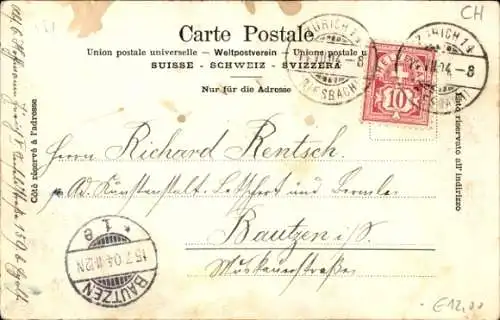 CH
Carte Postale
Union postale universelle — Weltpostverein — Unione postale u
SUISSE - SCHWEIZ - SVIZZERA
Nur für die Adresse
Côté réservé à l'adresse
Côté riservato all' indirizzo
ZÜRICH 14
04.-8
(RIESBACH)
ZÜRICH 14
04.-8
HELVETIA
10
Herrn Richard Rentsch.
Ad. Kunstanstalt
Bautzen i/S.
Muskauerstraße
* 1 e
15.7.04.
BAUTZEN
€12,00